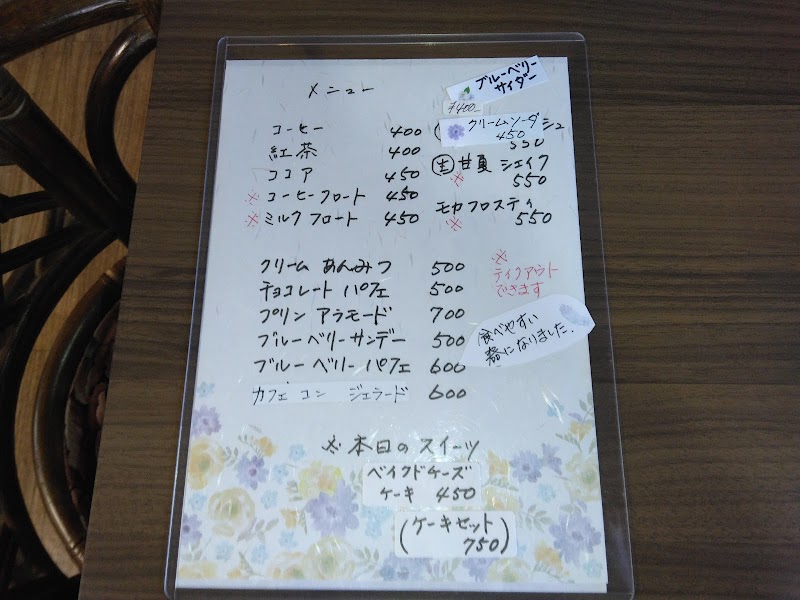 メニュー
ブルーベリー
サイダー
¥400-
コーヒー 400
紅茶 400
ココア 450
※コーヒーフロート 450
※ミルクフロート 450
クリームソーダ
450
シュ
550
生 甘夏 シェイク
※ 550
モカフロスティ
※ 550
※
テイクアウト
できます
クリームあんみつ 500
チョコレートパフェ 500
プリンアラモード 700
ブルーベリーサンデー 500
ブルーベリーパフェ 600
カフェコンジェラード 600
食べやすい
器になりました。
※本日のスイーツ
ベイクドケーズ
ケーキ 450
(ケーキセット
750)